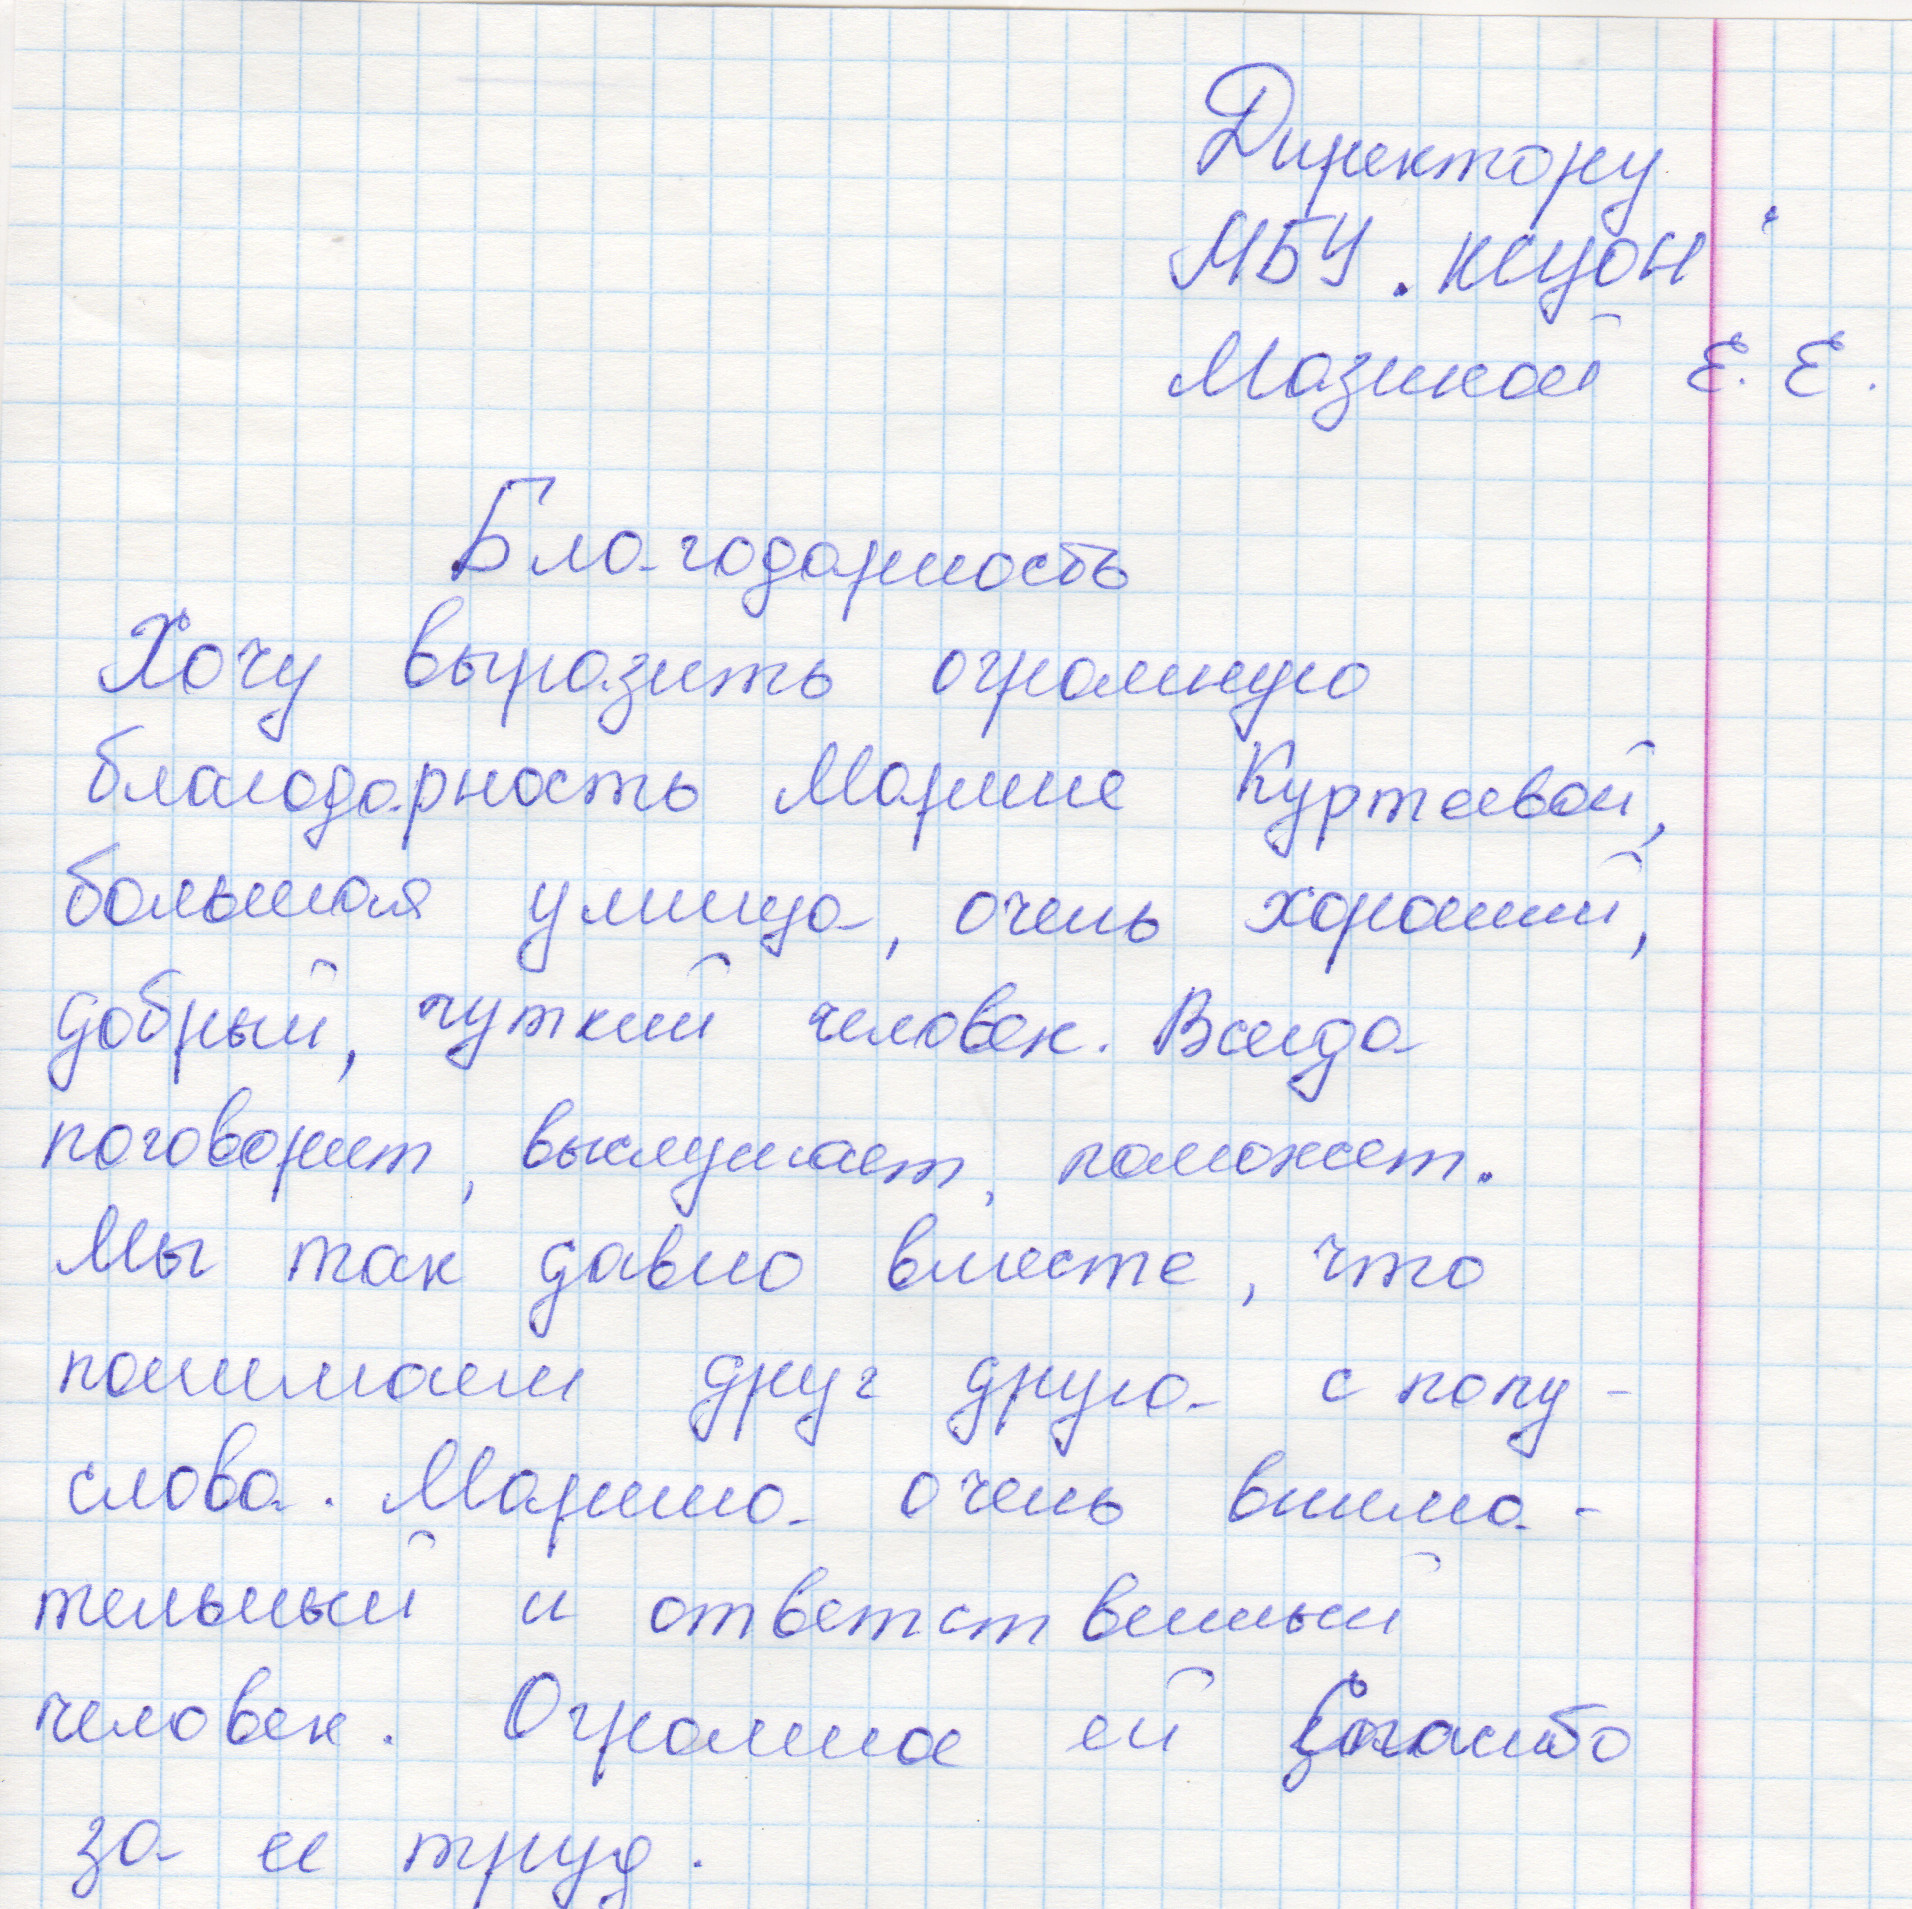 Директору
МБУ „КЦСОН"
Мазиной Е. Е.
Благодарность
Хочу выразить огромную
благодарность Марине Куртеевой,
большая умница, очень хороший,
добрый, чуткий человек. Всегда
поговорит, выслушает, поможет.
Мы так давно вместе, что
понимаем друг друга с полу-
слова. Марина очень внима-
тельный и ответственный
человек. Огромное ей спасибо
за ее труд.